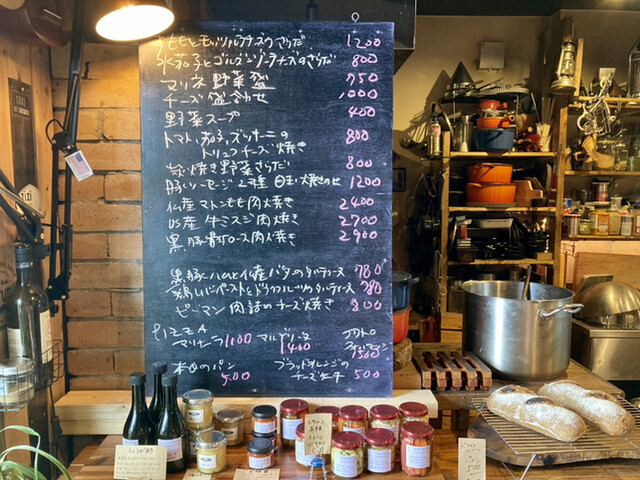 ももとモッツァレラチーズのさらだ 1200
水茄子とゴルゴンゾーラチーズのさらだ 800
マリネ野菜盛 750
チーズ盛合わせ 1000
野菜スープ 400
トマト、茄子、ズッキーニの
トリュフチーズ焼き 800
炭焼き野菜さらだ 800
豚ソーセージ2種 目玉焼きのせ 1200
仏産マトンもも肉炭焼き 2400
US産牛ミスジ肉炭焼き 2700
黒豚肩ロース肉炭焼き 2900
黒豚ハムと仏産バターのタルティーヌ 780
鶏レバーペーストとドライフルーツのタルティーヌ 780
ピーマン肉詰のチーズ焼き 800
PIZZA
マリナーラ 1100 マルゲリータ 1400 1500
本日のパン 500 ブラッドオレンジのチーズケーキ 500